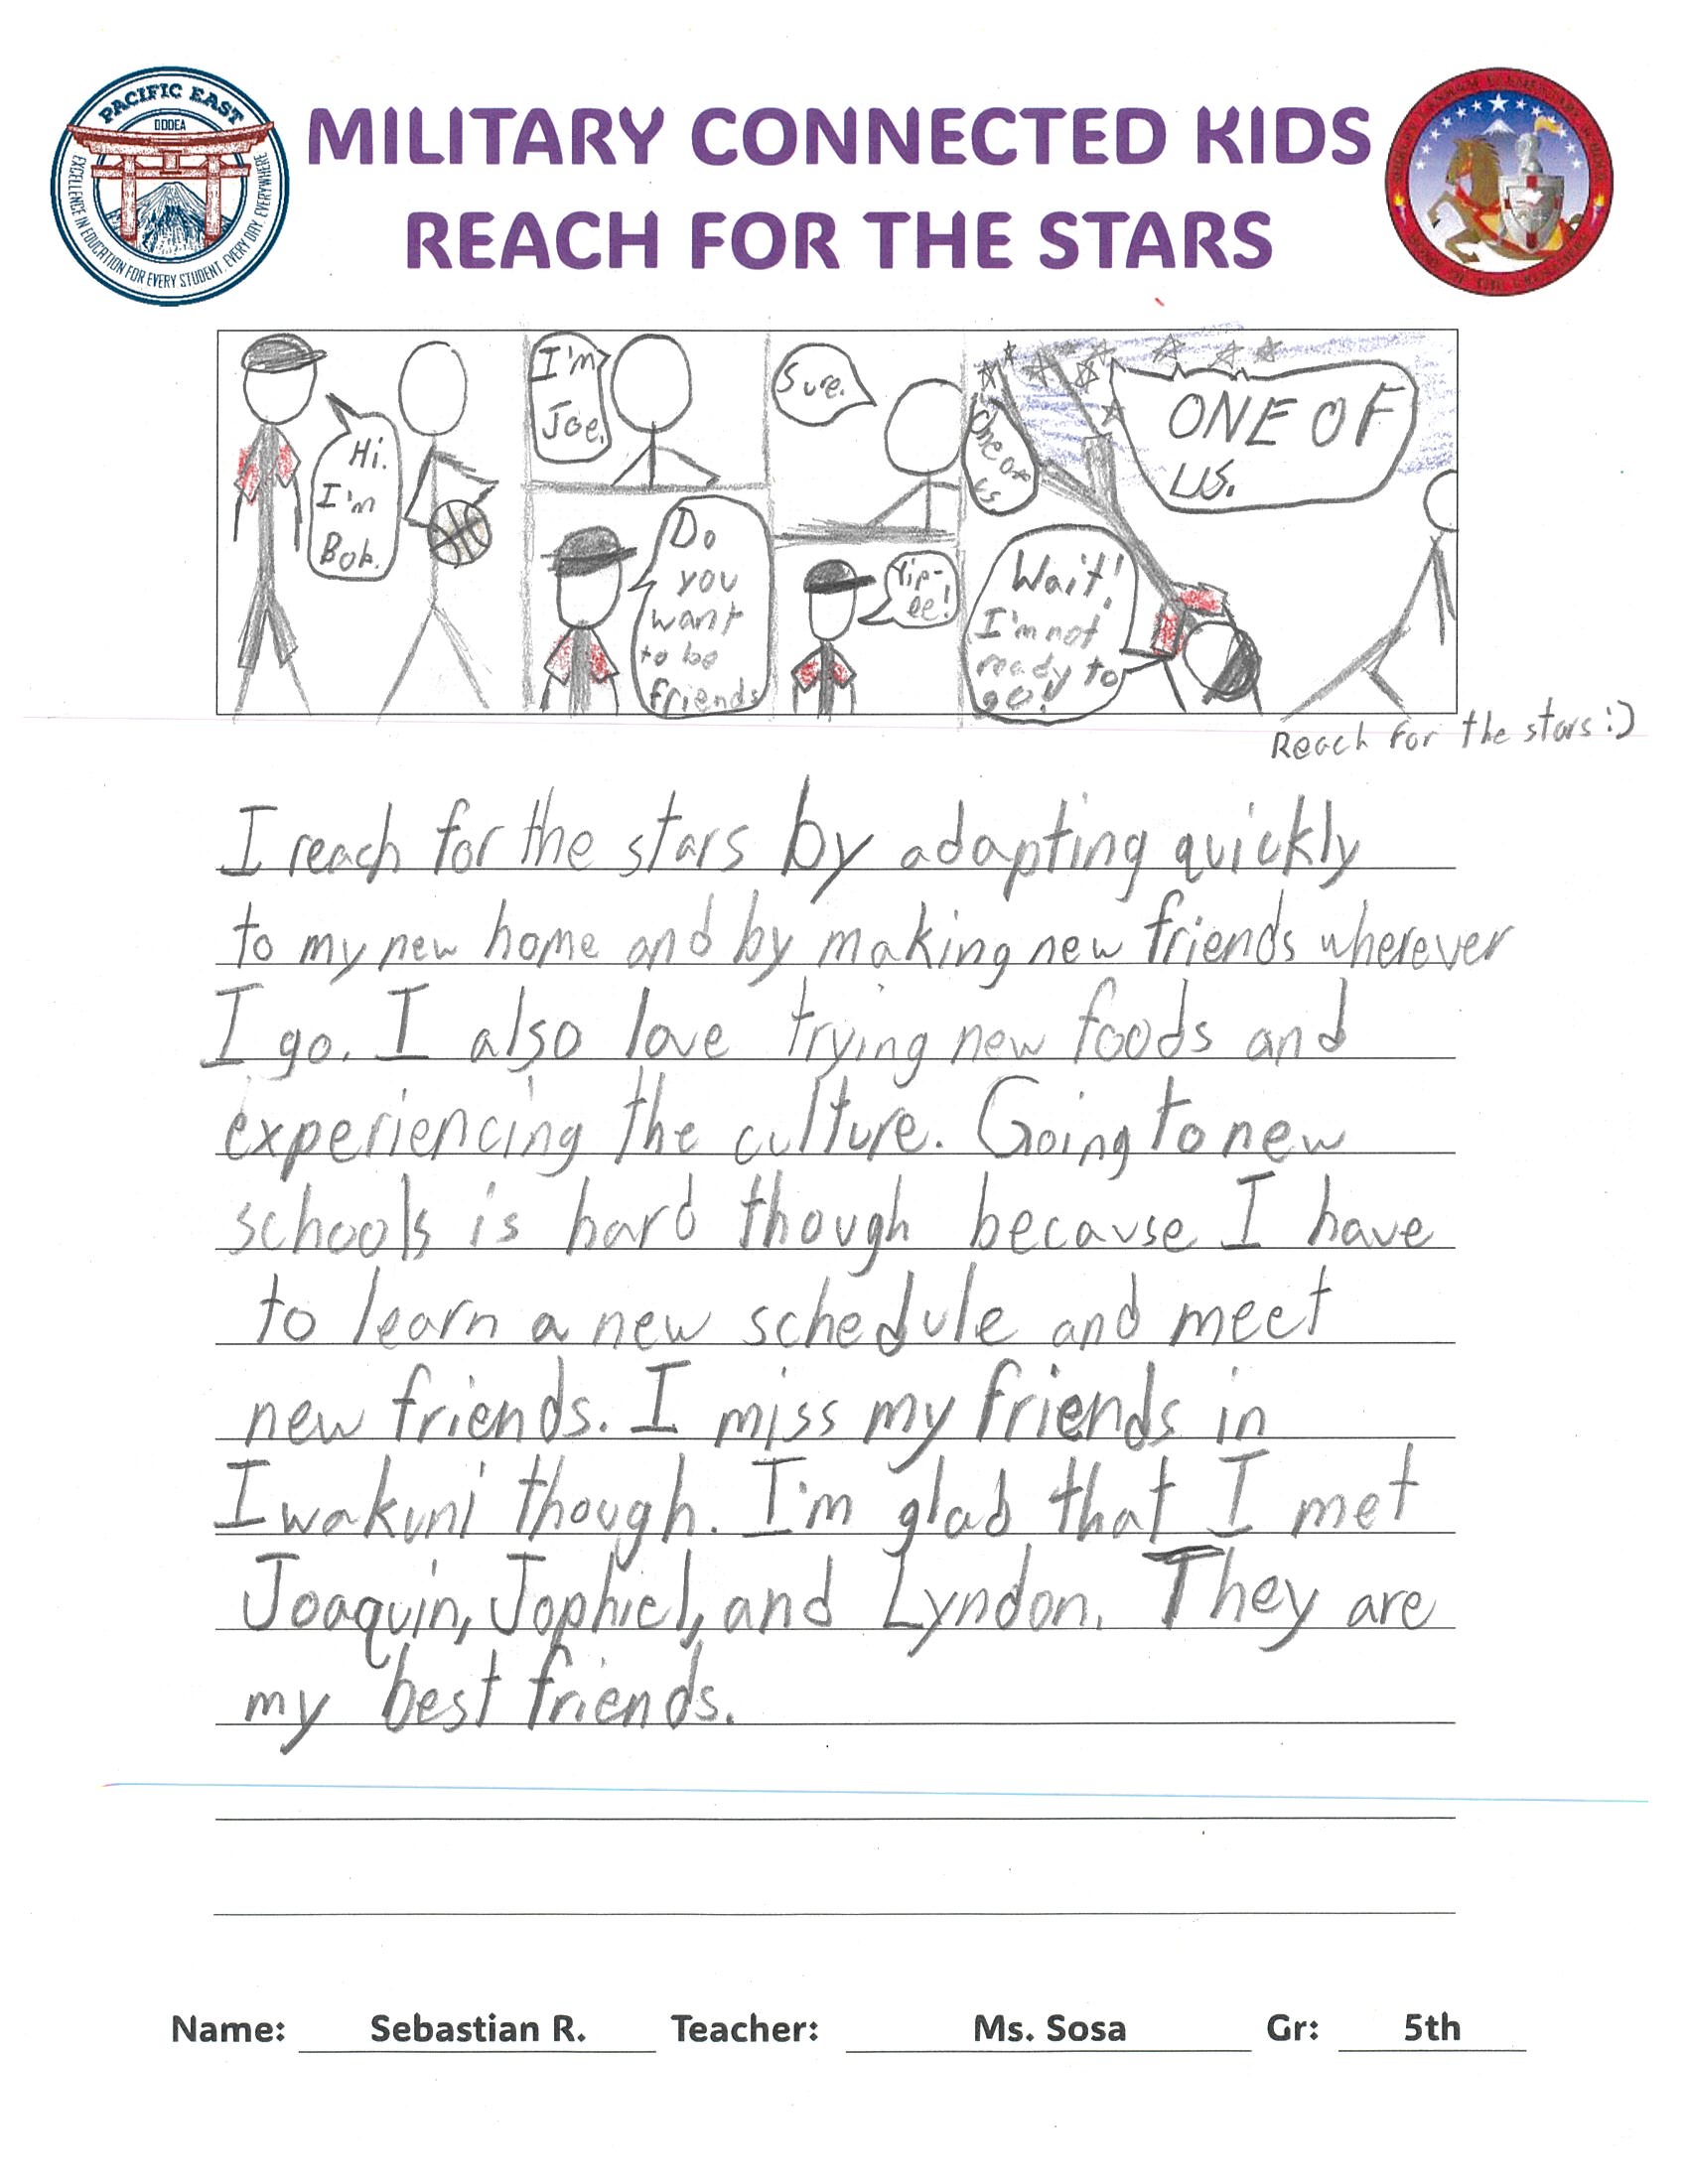 PACIFIC EAST
DODEA
EXCELLENCE IN EDUCATION FOR EVERY STUDENT, EVERY DAY, EVERYWHERE
MILITARY CONNECTED KIDS
REACH FOR THE STARS
Hi.
I'm
Bob.
I'm
Joe.
Do
you
want
to be
friends
Sure.
Yip-
ee!
One of
us
ONE OF
US.
Wait!
I'm not
ready to
go!
Reach for the stars :)
I reach for the stars by adapting quickly
to my new home and by making new friends wherever
I go. I also love trying new foods and
experiencing the culture. Going to new
schools is hard though because I have
to learn a new schedule and meet
new friends. I miss my friends in
Iwakuni though. I'm glad that I met
Joaquin, Jophiel, and Lyndon. They are
my best friends.
Name: Sebastian R. Teacher: Ms. Sosa Gr: 5th